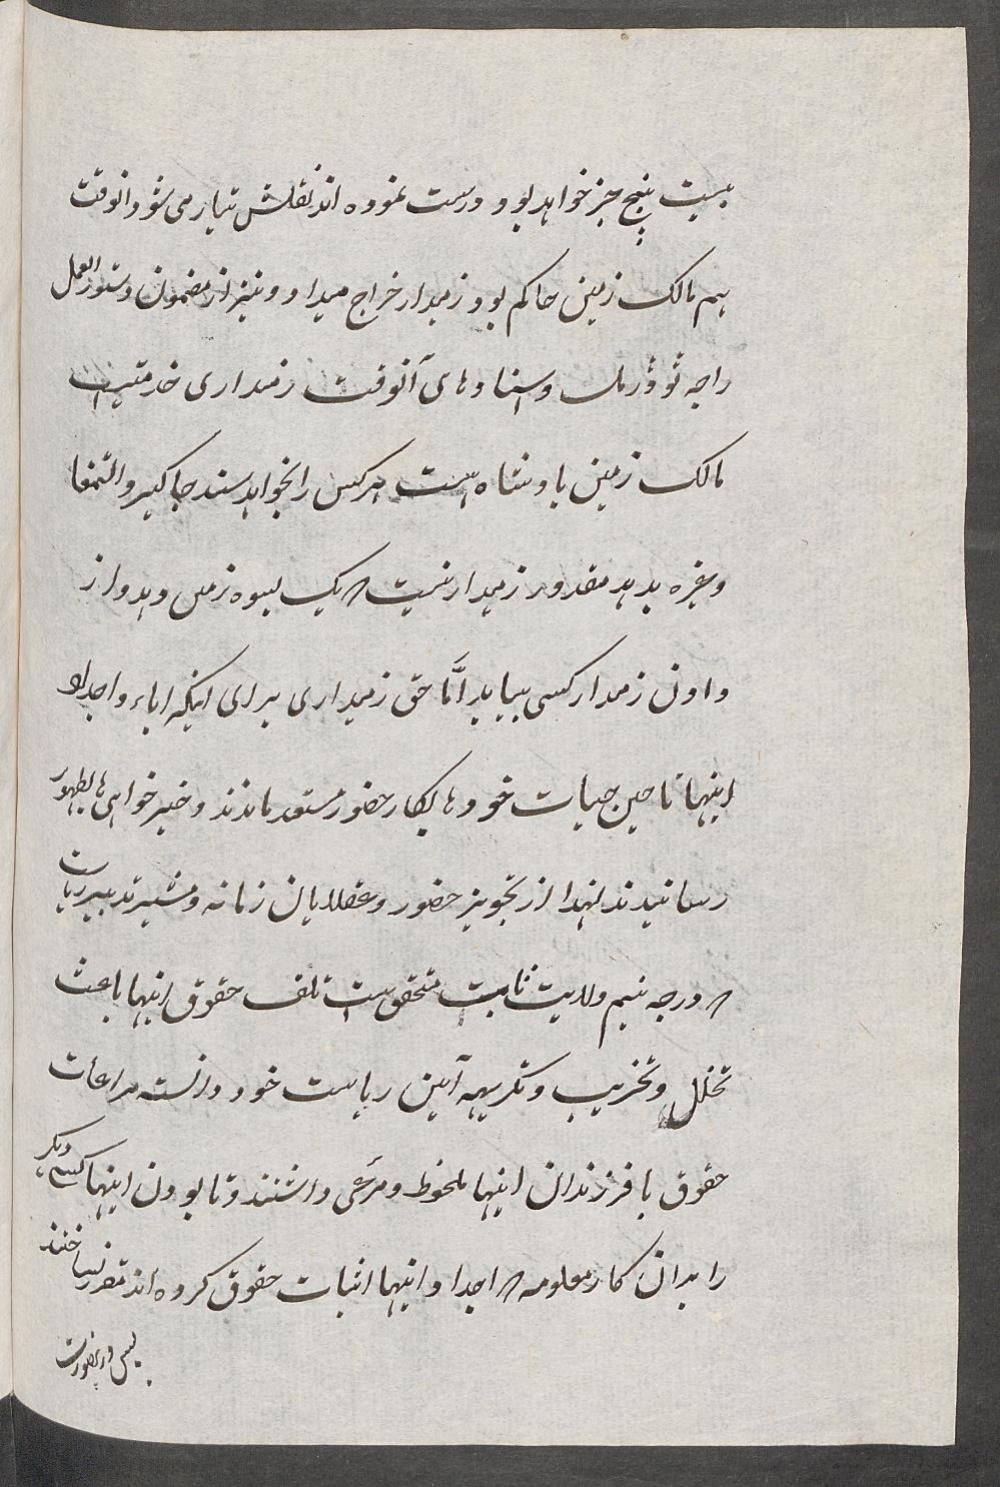 بیست پنج جز خواهد بود و درست نموده اند نقلش تیار می شود انوقت
هم مالک زمین حاکم بود زمیدار خراج میداد و نیز از مضمون دستور العمل
راجه تودرمل و اسنادهای آنوقت زمیداری خدمتیست
مالک زمین بادشاه هست هرکس را بخواهد سند جاگیر و التمغا
وغیره بدهد مقدور زمیدار نیست که یک بسوه زمین دهد و از
دادن زمیدار کسی بیابد امّا حق زمیداری برای اینکه اباء و اجداد
اینها تا حین حیات خودها بکار حضور مستعد ماندند و خیر خواهی ها بظهور
رسانیدند لهذا از تجویز حضور و عقلایان زمانه و مشیر تدبیر ریاست
که درجه نیم ولایت ثابت متحقق است تلف حقوق اینها باعث
تخلل و تخریب و تکریهه آیین ریاست خود دانسته مراعات
حقوق با فرزندان اینها ملحوظ و مرعی داشتند و تا بودن اینها کسی دیگر
را بدان کار معلومه که اجداد اینها اثبات حقوق کرده اند مقرر نساختند
پس درینصورت